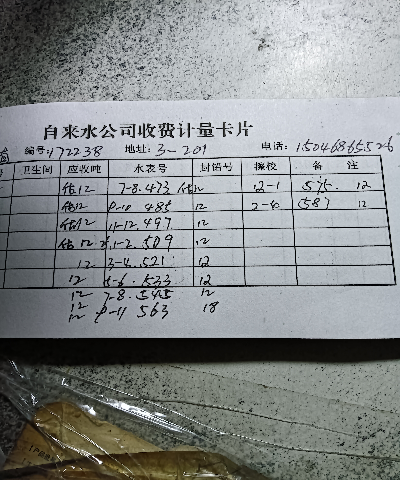 自来水公司收费计量卡片
编号:172238 地址: 3-201 电话: 15046865526
卫生间 应收吨 水表号 封铅号 换校 备 注
估12 7-8.473 估12 12-1 575. 12
估12 9-10 485 12 2-40 587 12
估12 11-12.497 12
估12 1-2.509 12
12 3-4.521 12
12 5-6.533 12
12 7-8.545 12
12
12 9-11 563 18